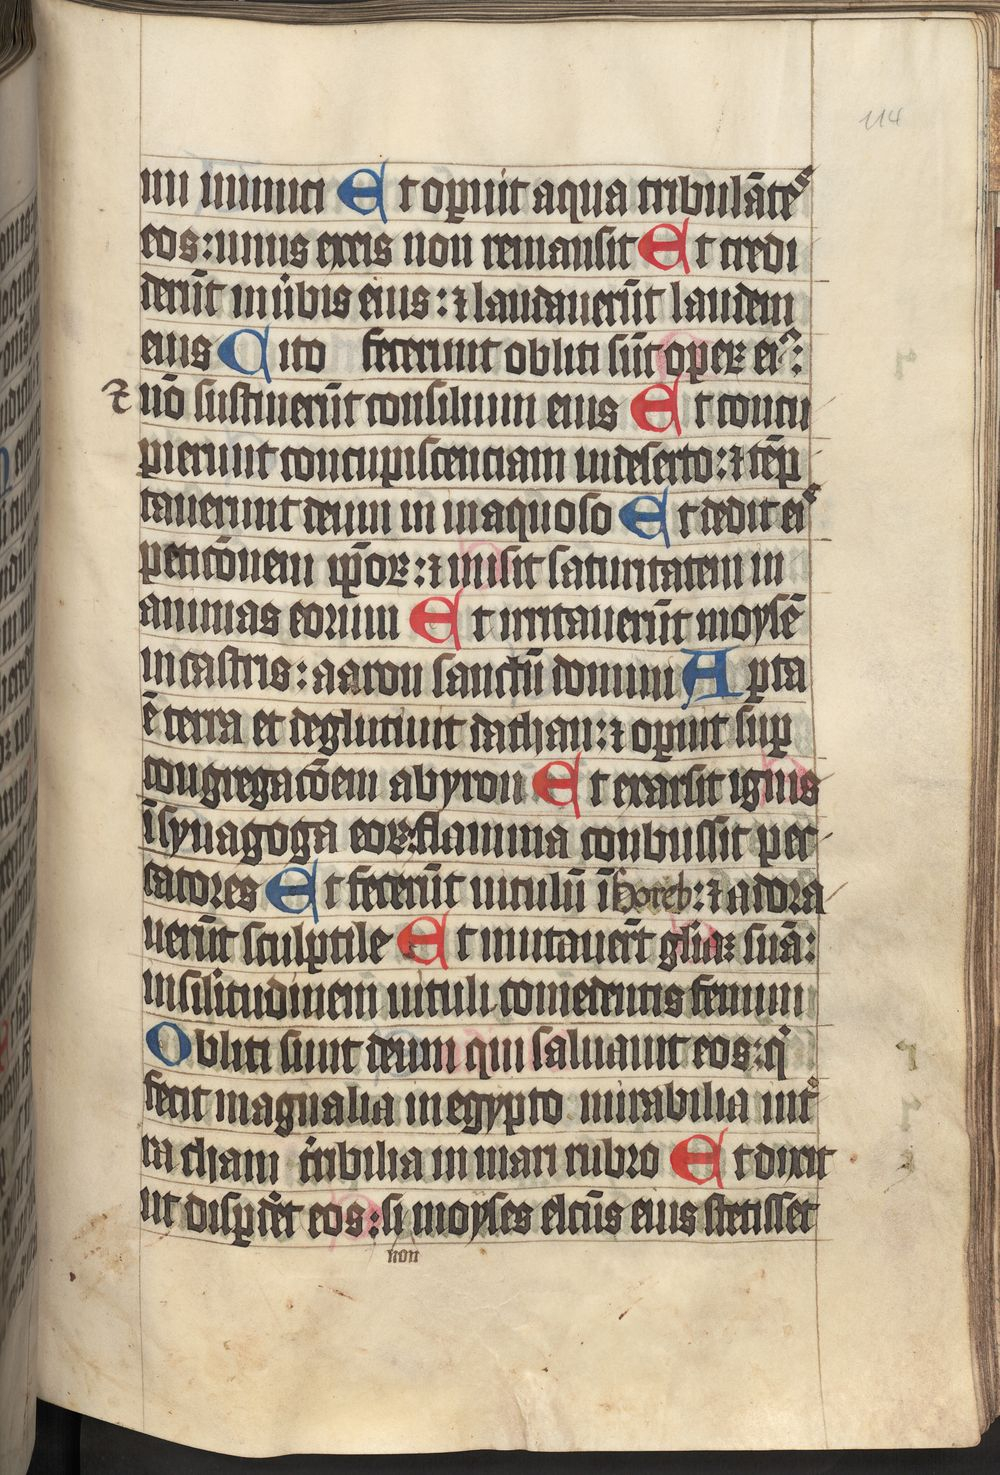 114
mi inimici Et op̱uit aqua tribulātes
eos: unus ex eis non remansit Et credi
derūt in u̇bis eius: ⁊ laudauerūt laudem
eius Cito fecerunt obliti sūt operꝝ eiꝰ:
⁊ nō sustinuerūt consilium eius Et concu
pierunt concupiscenciam in deserto: ⁊ tēp
tauerunt deum in inaquoso Et dedit eis
peticōnem ip̄oꝝ: ⁊ misit saturitatem in
animas eorum Et irritauerūt moysē
in castris: aaron sanctū domini Apta
ē terra et deglutiuit dathan: ⁊ op̱uit suꝑ
congregacōem abyron Et exarsit ignis
ī synagoga eoꝝ: flamma conbussit pec
catores Et fecerūt uitulū ī horeb: ⁊ adora
uerūt sculptile Et mutauer̄t gl̄iaꝫ suā:
in sil̓itudinem uituli comedentis fenum
Obliti sunt deum qui saluauit eos: qͥ
fecit magnalia in egypto mirabilia in t̓
ra cham t̓ribilia in mari rubro Et dixit
ut disꝑd̓et eos: si moyses elc̄us eius stetisset
non